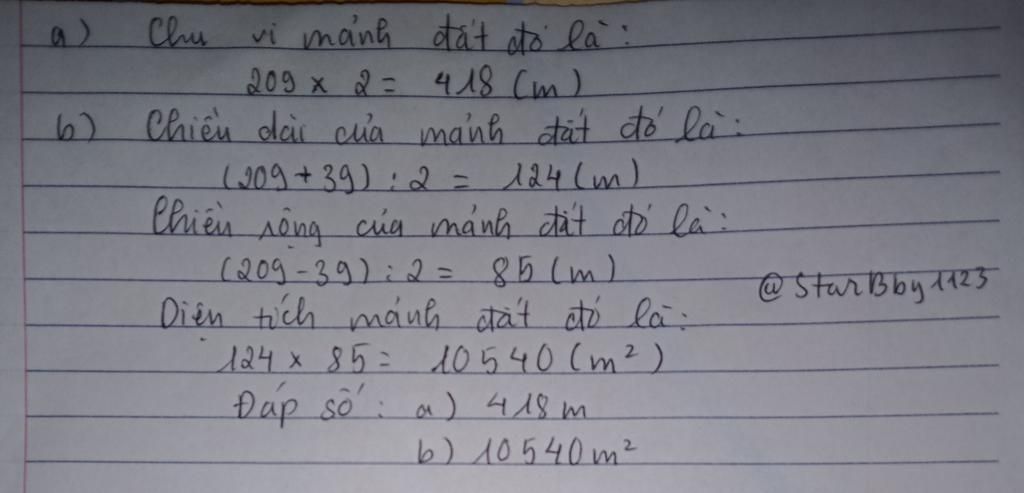 a) Chu vi mảnh đất đó là:
209 x 2 = 418 (m)
b) Chiều dài của mảnh đất đó là:
(209 + 39) : 2 = 124 (m)
Chiều rộng của mảnh đất đó là:
(209 - 39) : 2 = 85 (m)
@StarBby1123
Diện tích mảnh đất đó là:
124 x 85 = 10540 (m²)
Đáp số: a) 418m
b) 10540m²